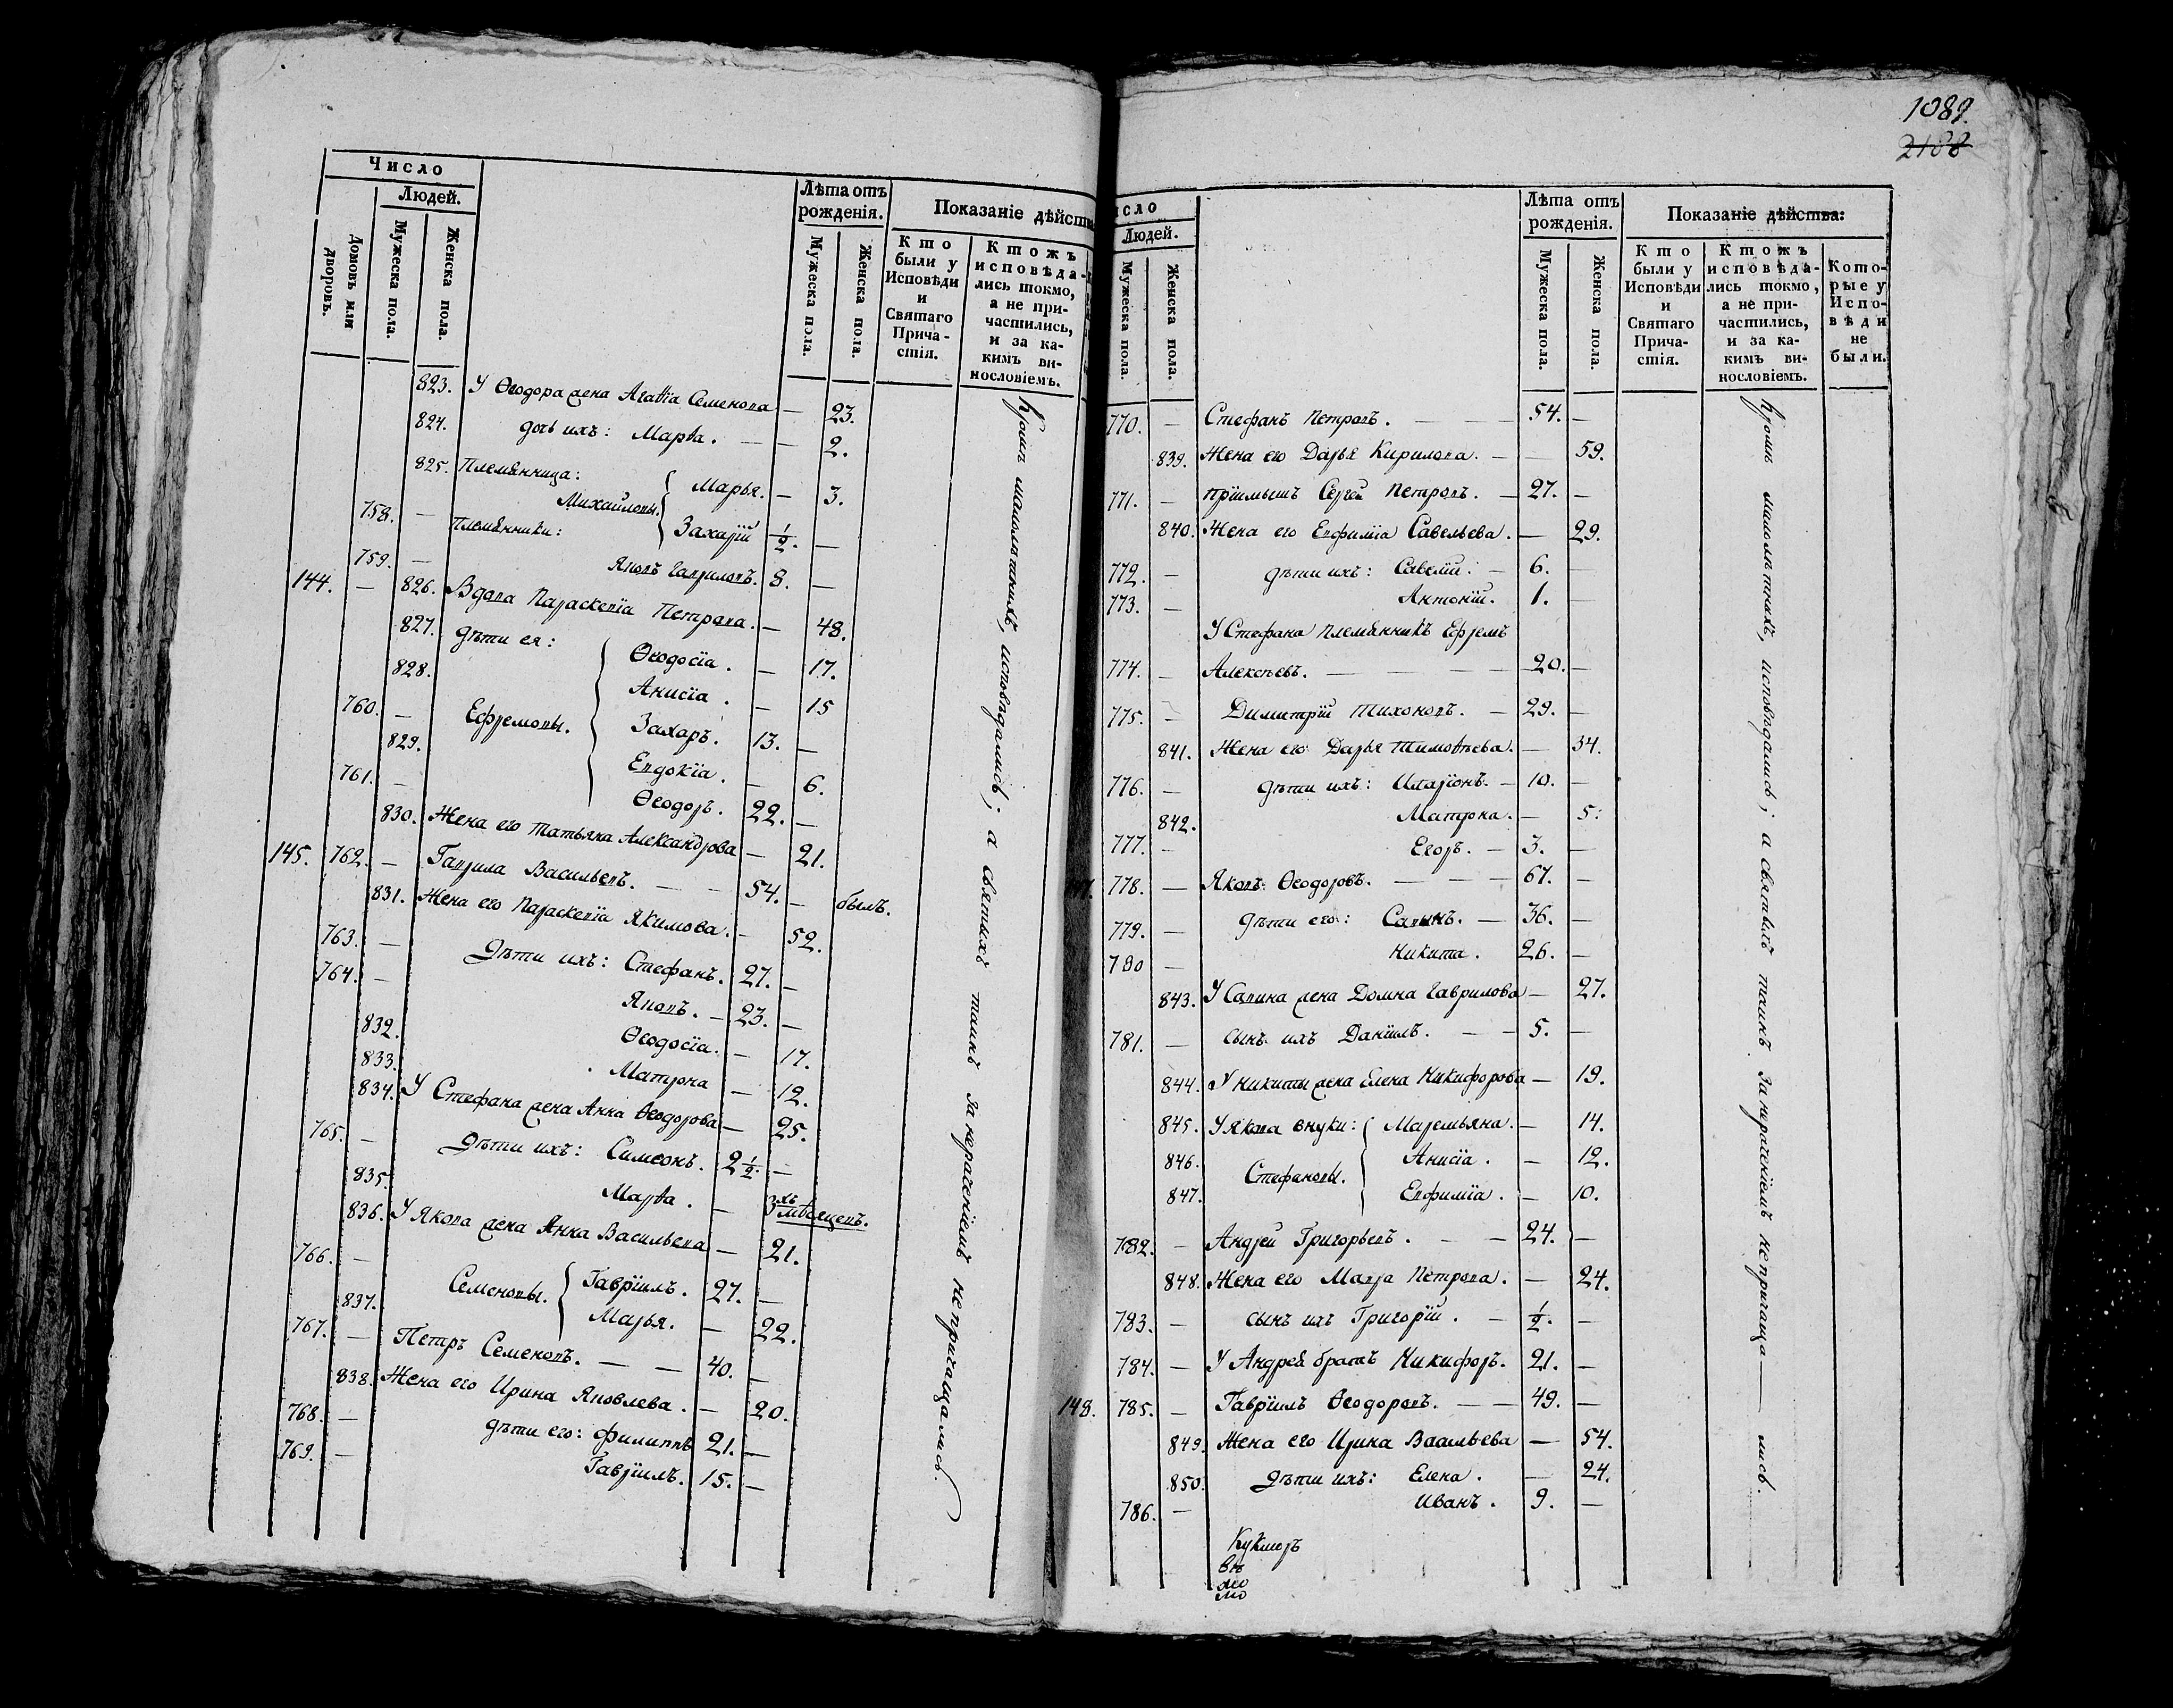 Число
Людей.
Домовъ или дворовъ.
Мужеска пола.
Женска пола.
Лѣта отъ рожденія.
Мужеска пола.
Женска пола.
Показаніе дѣйств
Кто были у Исповѣди и Святаго Причастія.
Ктожъ исповѣдались токмо, а не причастились, и за какимъ винословіемъ.
823. У Ѳеодора жена Агаѳіа Семенова — 23.
824. дочь ихъ: Марѳа. — — 2.
825. Племянница: Марья. — 3.
Михайловы.
758. — Племянники: Захарій ½. —
759. — Яковъ Гавриловъ. 8. —
144. — 826. Вдова Параскевіа Петрова. — 48.
827. дѣти ея: Ѳеодосіа. — 17.
828. Анисіа. — 15
760. — Ефремовы. Захаръ. 13. —
829. Евдокіа. — 6.
761. — Ѳеодоръ. 22. —
830. Жена его Татьяна Александрова — 21.
145. 762. — Гаврила Васильевъ. — — 54. — былъ.
831. Жена его Параскевіа Якимова. — 52.
763. — Дѣти ихъ: Стефанъ. 27. —
764. — Яковъ. — 23. —
832. Ѳеодосіа. — 17.
833. Матрона — 12.
834. У Стефана жена Анна Ѳеодорова — 25.
765. — Дѣти ихъ: Симеонъ. 2½. —
835. Марѳа. — 3хъ мѣсяцевъ.
836. У Якова жена Анна Васильева — 21.
766. — Семеновы. Гавріилъ. 27. —
837. Марья. — 22.
767. — Петръ Семеновъ. — — 40. —
838. Жена его Ирина Яковлева. — 20.
768. — дѣти его: Филиппъ 21. —
769. — Гавріилъ. 15. —
Кромѣ малолѣтнихъ, исповѣдались; а святыхъ таинъ за нераченіемъ непричащались.
1089.
2188
исло
Людей.
Мужеска пола.
Женска пола.
Лѣта отъ рожденія.
Мужеска пола.
Женска пола.
Показаніе дѣйства:
Кто были у Исповѣди и Святаго Причастія.
Ктожъ исповѣдались токмо, а не причастились, и за какимъ винословіемъ.
Которые у Исповѣди не были.
770. — Стефанъ Петровъ. — — 54. —
839. Жена его Дарья Кирилова. — — 59.
771. — Пріимышъ Сергей Петровъ. — 27. —
840. Жена его Евфиміа Савельева. — 29.
772. — дѣти ихъ: Савелій. — 6. —
773. — Антоній. 1. —
У Стефана племянникъ Ефремъ
774. — Алексѣевъ. — — — 20. —
775. — Димитрій Тихоновъ. — 29. —
841. Жена его Дарья Тимоѳѣева. — 34.
776. — Дѣти ихъ: Иларіонъ. — 10. —
842. Матрона. — 5.
777. — Егоръ. — 3. —
778. — Яковъ Ѳеодоровъ. — — — 67. —
779. — Дѣти его: Савинъ. — 36. —
780 — Никита. 26. —
843. У Савина жена Домна Гаврилова — 27.
781. — сынъ ихъ Даніилъ. — — 5. —
844. У Никиты жена Елена Никифорова — 19.
845. У Якова внуки: Маремьяна. — 14.
846. Анисіа. — 12.
Стефановы.
847. Евфиміа. — 10.
782. — Андрей Григорьевъ. — — 24. —
848. Жена его Мавра Петрова. — 24.
783. — сынъ ихъ Григорій. — ½. —
784. — У Андрея братъ Никифоръ. 21. —
148. 785. — Гавріилъ Ѳеодоровъ. — — 49. —
849. Жена его Ирина Васильева — 54.
850. Дѣти ихъ: Елена. — 24.
786. — Иванъ. 9. —
Кромѣ малолѣтнихъ, исповѣдались; а святыхъ таинъ за нераченіемъ непричаща — лись.